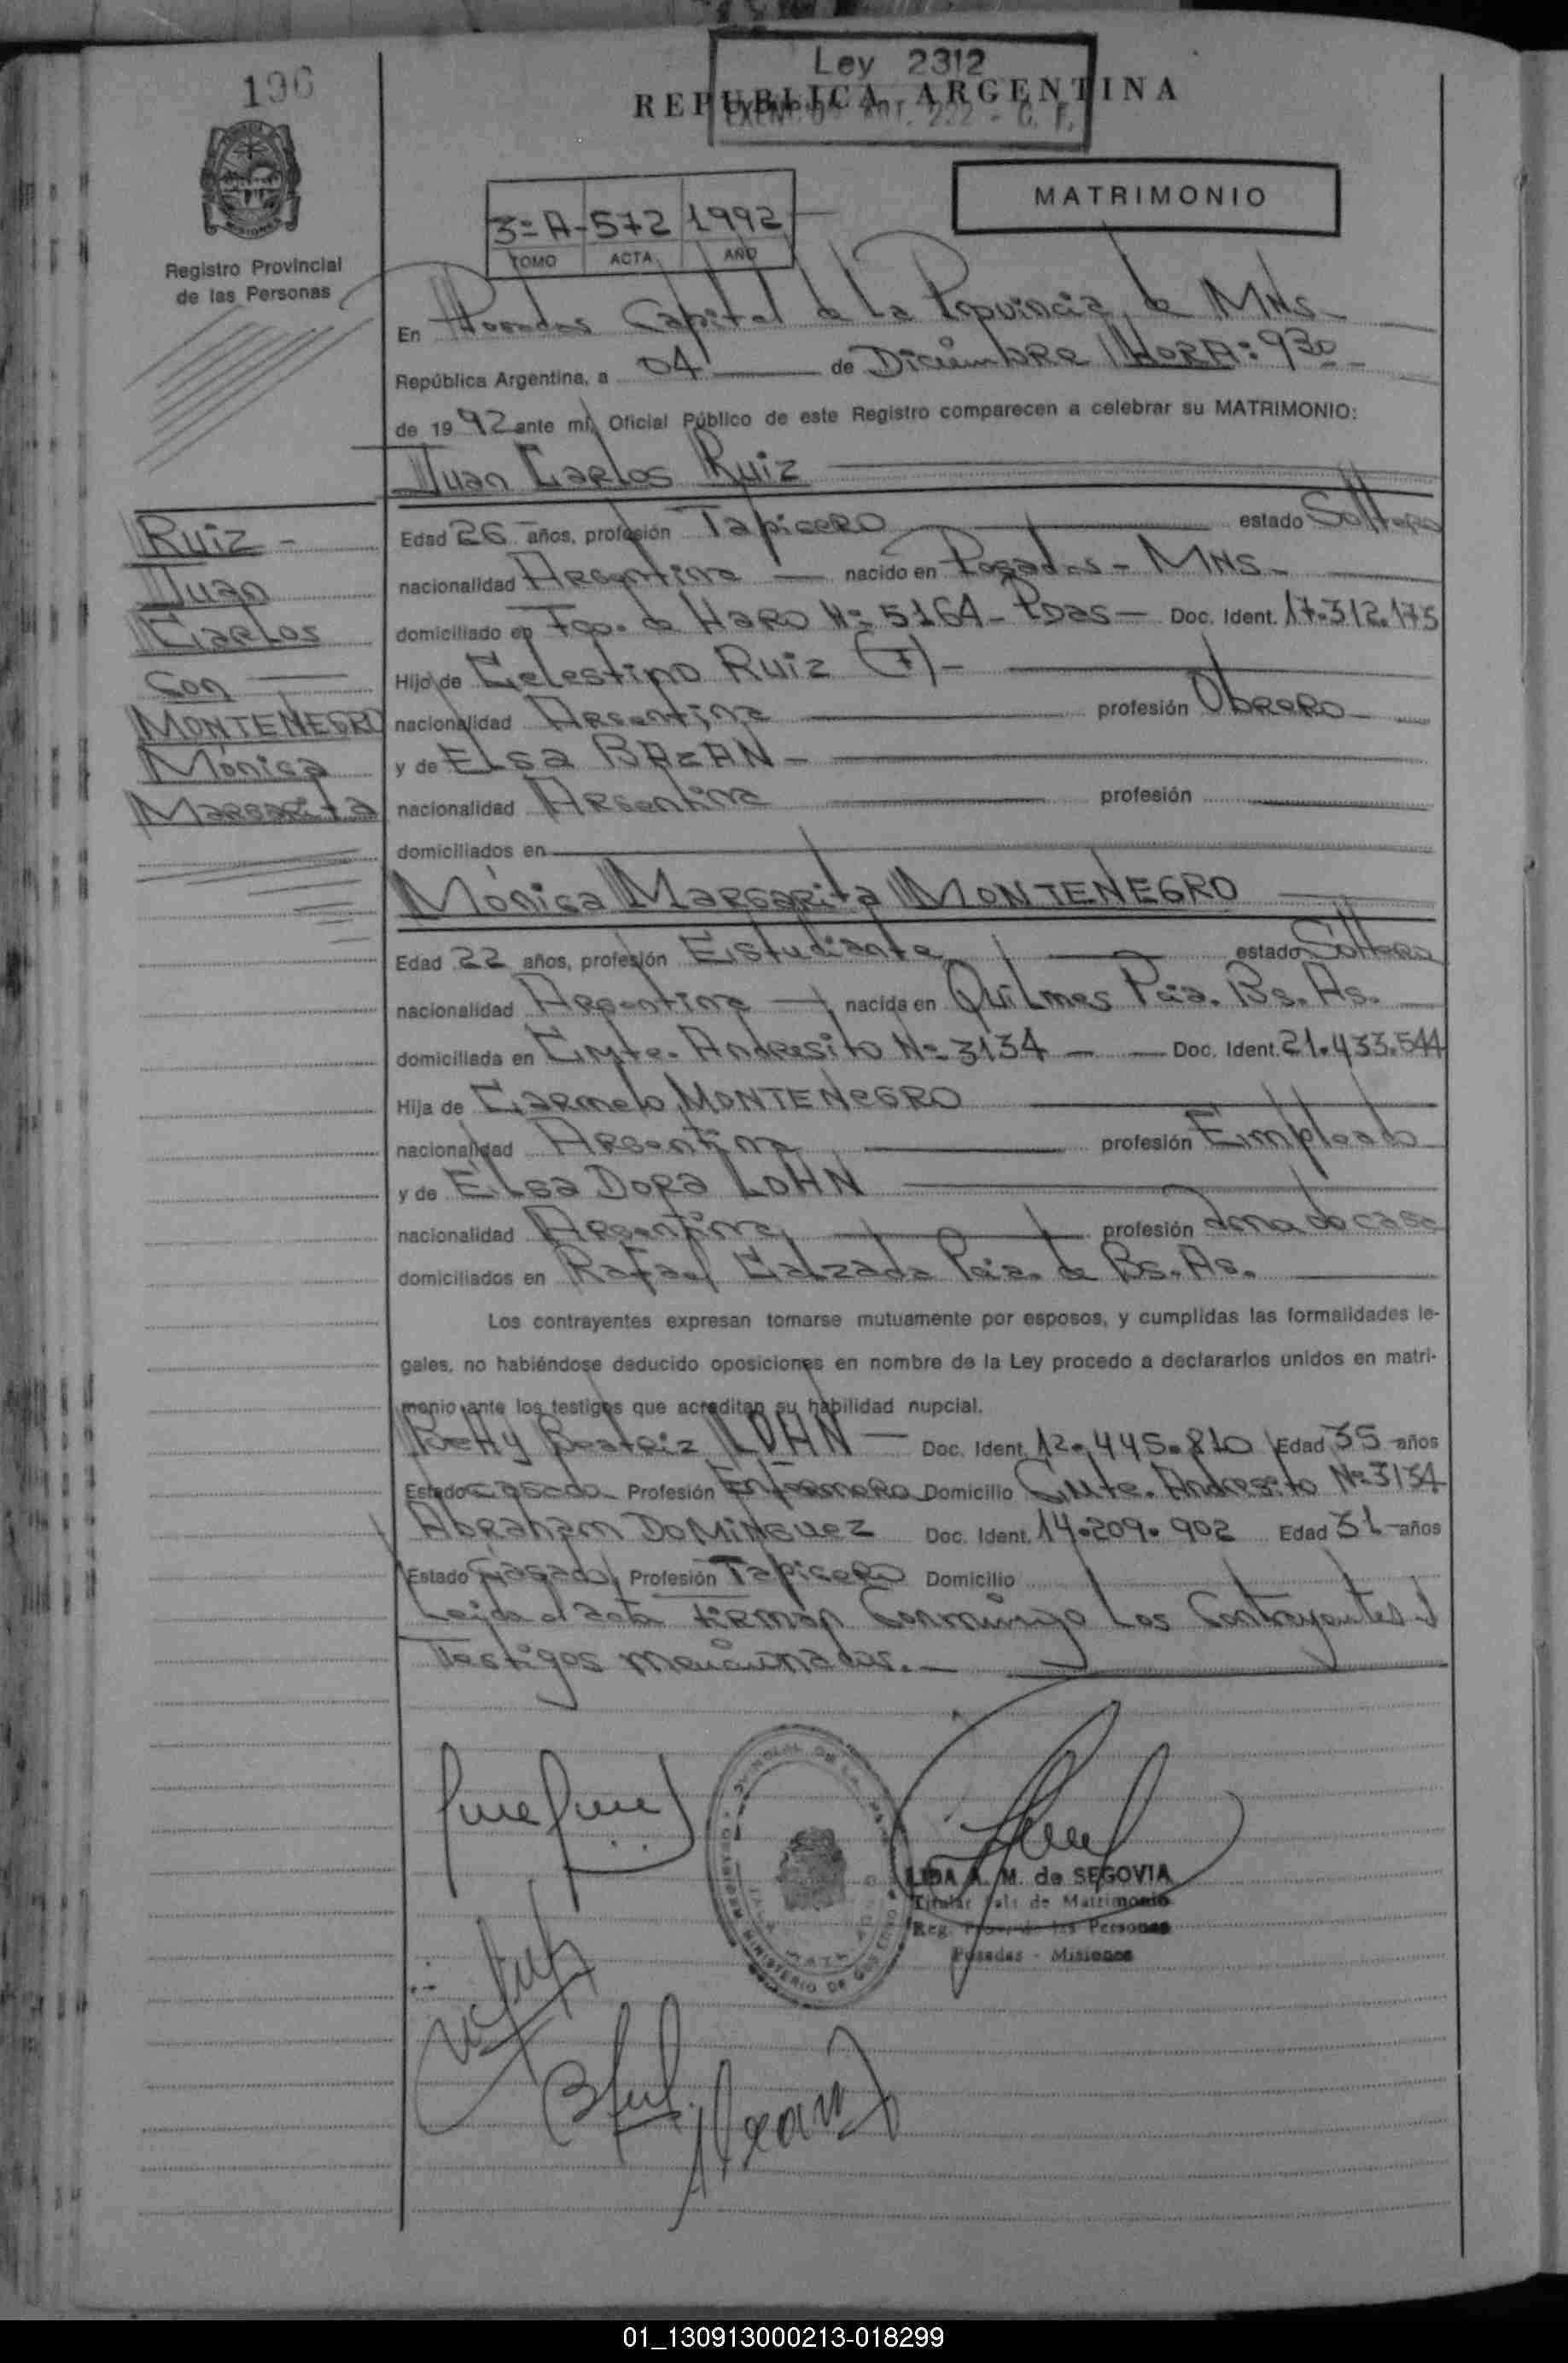 196
Ley 2312
REPUBLICA ARGENTINA
ART. 222 - C. F.
MATRIMONIO
3º A - 572 1992
TOMO ACTA AÑO
Registro Provincial
de las Personas
En Posadas Capital de la Provincia de MNS -
República Argentina, a 04 de Diciembre HORA: 930 -
de 1992 ante mí, Oficial Público de este Registro comparecen a celebrar su MATRIMONIO:
Juan Carlos Ruiz
Ruiz -
Juan
Carlos
Con
MONTENEGRO
Mónica
Margarita
Edad 26 años, profesión Tapicero estado Soltero
nacionalidad Argentina nacido en Posadas - MNS -
domiciliado en Fco. de Haro Nº 5164 - Pdas - Doc. Ident. 17.312.175
Hijo de Celestino Ruiz (F) -
nacionalidad Argentina profesión Obrero
y de Elsa BAZAN -
nacionalidad Argentina profesión
domiciliados en
Mónica Margarita MONTENEGRO
Edad 22 años, profesión Estudiante estado Soltera
nacionalidad Argentina nacida en Quilmes Pcia. Bs. As.
domiciliada en Cmte. Andresito Nº 3134 - Doc. Ident. 21.433.544
Hija de Carmelo MONTENEGRO
nacionalidad Argentina profesión Empleado
y de Elsa Dora LOHN
nacionalidad Argentina profesión ama de casa
domiciliados en Rafael Calzada Pcia. de Bs. As.
Los contrayentes expresan tomarse mutuamente por esposos, y cumplidas las formalidades le-
gales, no habiéndose deducido oposiciones en nombre de la Ley procedo a declararlos unidos en matri-
monio ante los testigos que acreditan su habilidad nupcial.
Betty Beatriz LOHN - Doc. Ident. 12.445.810 Edad 35 años
Estado Casada Profesión Enfermera Domicilio Cmte. Andresito Nº 3134
Abraham DOMINGUEZ Doc. Ident. 14.209.902 Edad 31 años
Estado Casado Profesión Tapicero Domicilio
Leida el acta firman conmigo los Contrayentes y
Testigos mencionados. -
LIDA A. M. de SEGOVIA
Titular de Matrimonio
Reg. Prov. de las Personas
Posadas - Misiones
MINISTERIO DE
01_130913000213-018299